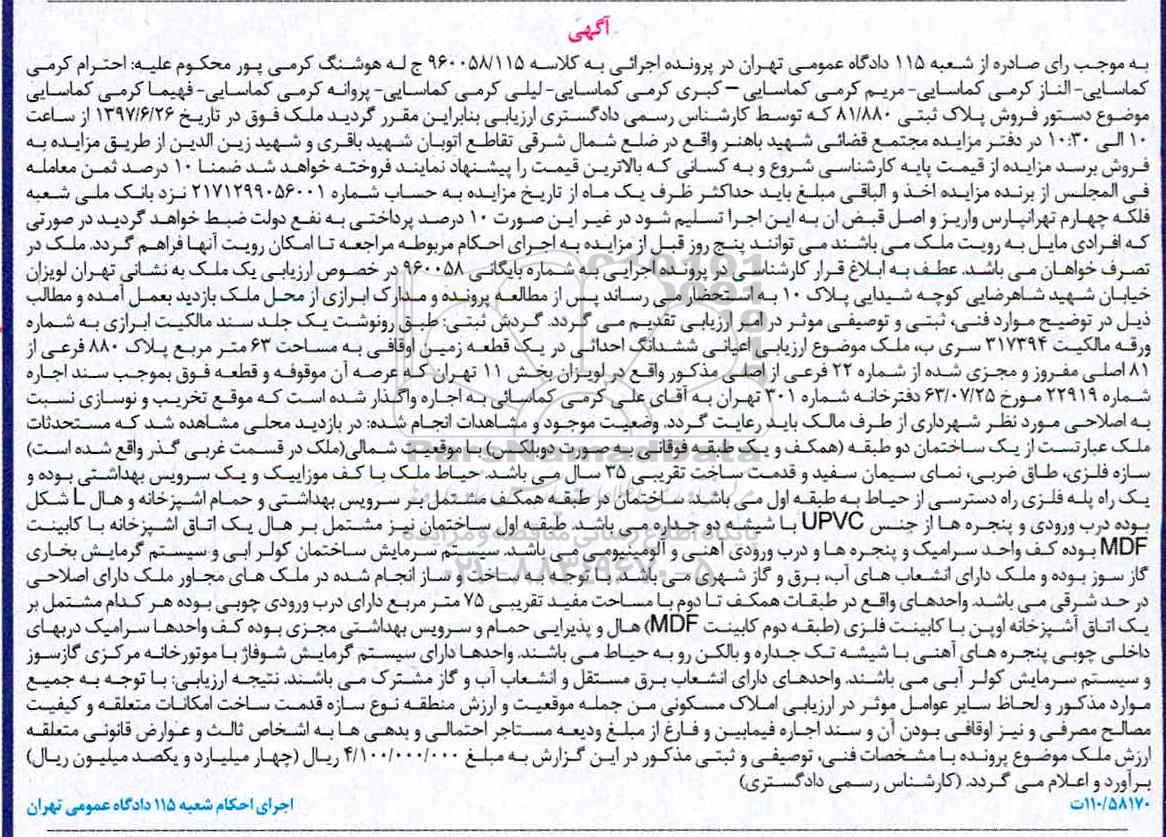 آگهی
به موجب رای صادره از شعبه ۱۱۵ دادگاه عمومی تهران در پرونده اجرائی به کلاسه ۹۶۰۰۵۸/۱۱۵ ج له هوشنگ کرمی پور محکوم علیه: احترام کرمی
کماسایی- الناز کرمی کماسایی- مریم کرمی کماسایی – کبری کرمی کماسایی- لیلی کرمی کماسایی- پروانه کرمی کماسایی- فهیما کرمی کماسایی
موضوع دستور فروش پلاک ثبتی ۸۱/۸۸۰ که توسط کارشناس رسمی دادگستری ارزیابی بنابراین مقرر گردید ملک فوق در تاریخ ۱۳۹۷/۶/۲۶ از ساعت
۱۰ الی ۱۰:۳۰ در دفتر مزایده مجتمع قضائی شهید باهنر واقع در ضلع شمال شرقی تقاطع اتوبان شهید باقری و شهید زین الدین از طریق مزایده به
فروش برسد مزایده از قیمت پایه کارشناسی شروع و به کسانی که بالاترین قیمت را پیشنهاد نمایند فروخته خواهد شد ضمنا ۱۰ درصد ثمن معامله
فی المجلس از برنده مزایده اخذ و الباقی مبلغ باید حداکثر ظرف یک ماه از تاریخ مزایده به حساب شماره ۲۱۷۱۲۹۹۰۵۶۰۰۱ نزد بانک ملی شعبه
فلکه چهارم تهرانپارس واریز و اصل قبض ان به این اجرا تسلیم شود در غیر این صورت ۱۰ درصد پرداختی به نفع دولت ضبط خواهد گردید در صورتی
که افرادی مایل به رویت ملک می باشند می توانند پنج روز قبل از مزایده به اجرای احکام مربوطه مراجعه تا امکان رویت آنها فراهم گردد. ملک در
تصرف خواهان می باشد. عطف به ابلاغ قرار کارشناسی در پرونده اجرایی به شماره بایگانی ۹۶۰۰۵۸ در خصوص ارزیابی یک ملک به نشانی تهران لویزان
خیابان شهید شاهرضایی کوچه شیدایی پلاک ۱۰ به استحضار می رساند پس از مطالعه پرونده و مدارک ابرازی از محل ملک بازدید بعمل آمده و مطالب
ذیل در توضیح موارد فنی، ثبتی و توصیفی موثر در امر ارزیابی تقدیم می گردد. گردش ثبتی: طبق رونوشت یک جلد سند مالکیت ابرازی به شماره
ورقه مالکیت ۳۱۷۳۹۴ سری ب، ملک موضوع ارزیابی اعیانی ششدانگ احداثی در یک قطعه زمین اوقافی به مساحت ۶۳ متر مربع پلاک ۸۸۰ فرعی از
۸۱ اصلی مفروز و مجزی شده از شماره ۲۲ فرعی از اصلی مذکور واقع در لویزان بخش ۱۱ تهران که عرصه آن موقوفه و قطعه فوق بموجب سند اجاره
شماره ۲۲۹۱۹ مورخ ۶۳/۰۷/۲۵ دفترخانه شماره ۳۰۱ تهران به آقای علی کرمی کماسائی به اجاره واگذار شده است که موقع تخریب و نوسازی نسبت
به اصلاحی مورد نظر شهرداری از طرف مالک باید رعایت گردد. وضعیت موجود و مشاهدات انجام شده: در بازدید محلی مشاهده شد که مستحدثات
ملک عبارتست از یک ساختمان دو طبقه (همکف و یک طبقه فوقانی به صورت دوبلکس) با موقعیت شمالی(ملک در قسمت غربی گذر واقع شده است)
سازه فلزی، طاق ضربی، نمای سیمان سفید و قدمت ساخت تقریبی ۳۵ سال می باشد. حیاط ملک با کف موزاییک و یک سرویس بهداشتی بوده و
یک راه پله فلزی راه دسترسی از حیاط به طبقه اول می باشد. ساختمان در طبقه همکف مشتمل بر سرویس بهداشتی و حمام اشپزخانه و هال L شکل
بوده درب ورودی و پنجره ها از جنس UPVC با شیشه دو جداره می باشد. طبقه اول ساختمان نیز مشتمل بر هال یک اتاق اشپزخانه با کابینت
MDF بوده کف واحد سرامیک و پنجره ها و درب ورودی اهنی و آلومینیومی می باشد. سیستم سرمایش ساختمان کولر ابی و سیستم گرمایش بخاری
گاز سوز بوده و ملک دارای انشعاب های آب، برق و گاز شهری می باشد. با توجه به ساخت و ساز انجام شده در ملک های مجاور ملک دارای اصلاحی
در حد شرقی می باشد. واحدهای واقع در طبقات همکف تا دوم با مساحت مفید تقریبی ۷۵ متر مربع دارای درب ورودی چوبی بوده هر کدام مشتمل بر
یک اتاق آشپزخانه اوپن با کابینت فلزی (طبقه دوم کابینت MDF) هال و پذیرایی حمام و سرویس بهداشتی مجزی بوده کف واحدها سرامیک دربهای
داخلی چوبی پنجره های آهنی با شیشه تک جداره و بالکن رو به حیاط می باشند. واحدها دارای سیستم گرمایش شوفاژ با موتورخانه مرکزی گازسوز
و سیستم سرمایش کولر آبی می باشند. واحدهای دارای انشعاب برق مستقل و انشعاب آب و گاز مشترک می باشند. نتیجه ارزیابی: با توجه به جمیع
موارد مذکور و لحاظ سایر عوامل موثر در ارزیابی املاک مسکونی من جمله موقعیت و ارزش منطقه نوع سازه قدمت ساخت امکانات متعلقه و کیفیت
مصالح مصرفی و نیز اوقافی بودن آن و سند اجاره فیمابین و فارغ از مبلغ ودیعه مستاجر احتمالی و بدهی ها به اشخاص ثالث و عوارض قانونی متعلقه
ارزش ملک موضوع پرونده با مشخصات فنی، توصیفی و ثبتی مذکور در این گزارش به مبلغ ۴/۱۰۰/۰۰۰/۰۰۰ ریال (چهار میلیارد و یکصد میلیون ریال)
برآورد و اعلام می گردد. (کارشناس رسمی دادگستری)
۱۱۰/۵۸۱۷۰ت اجرای احکام شعبه ۱۱۵ دادگاه عمومی تهران
پایگاه اطلاع رسانی مناقصه و مزایده
۰۲۱-۸۸۳۴۹۶۷۰-۵